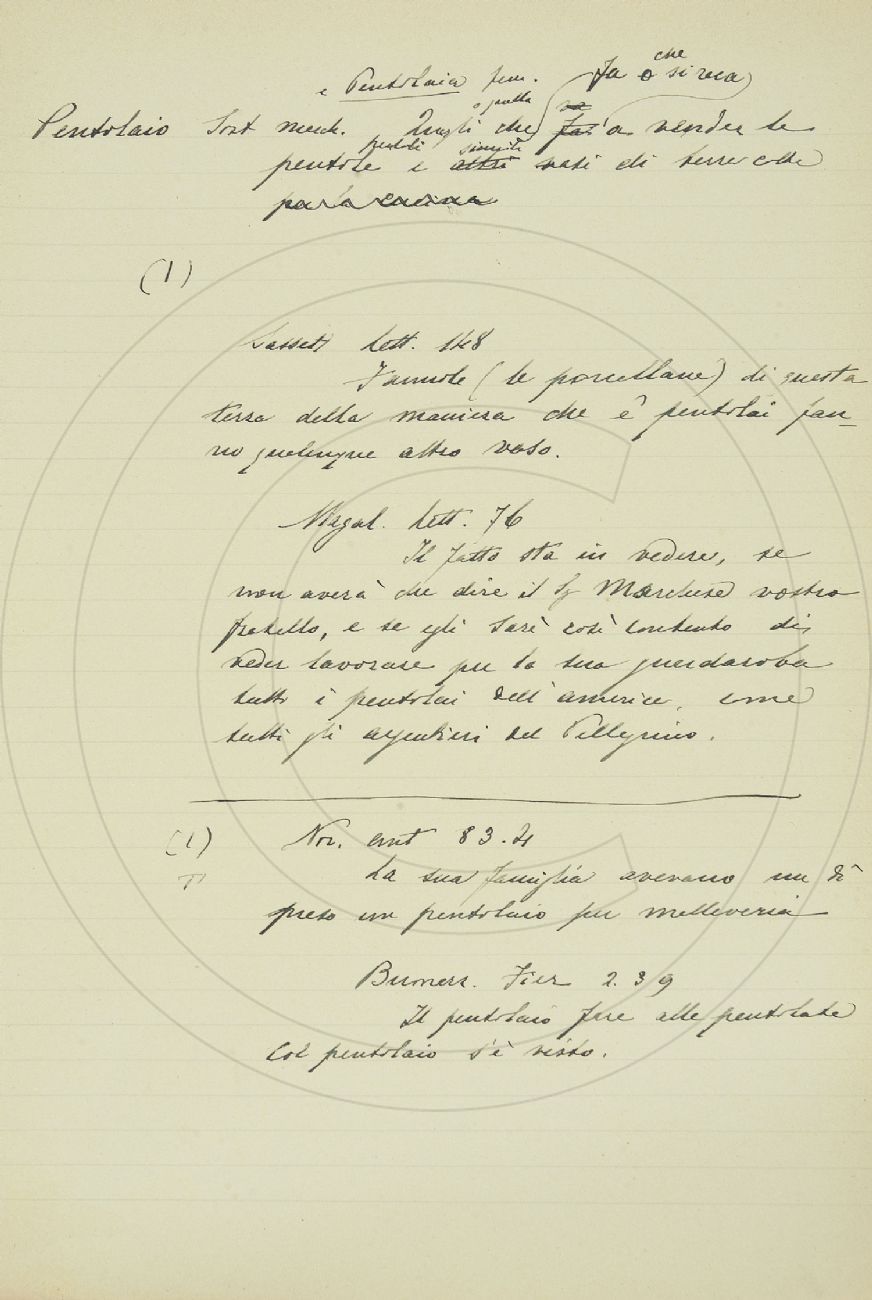 e Pentolaia fem.
che
fa o si rica
o quella
Pentolaio Sost masch. Quegli che fa o vende le
pentoli simili
pentole e altri vasi di terra cotta
per la cucina
(1)
Sassetti Lett. 148
Fannole (le porcellane) di questa
terra della maniera che e' pentolai fan-
no qualunque altro vaso.
Magal. Lett. 76
Il fatto sta in vedere, se
non averà che dire il Sr Marchese vostro
fratello, e se egli sarà così contento di
veder lavorare per la sua guardaroba
tutti i pentolai dell'america, come
tutti gli argentieri del Pellegrino.
(1) Nov. ant 83.4
T La sua famiglia avevano un dì
preso un pentolaio per malleveria
Buonarr. Fier 2. 3 9
Il pentolaio fare alle pentolate
Col pentolaio s'è visto.